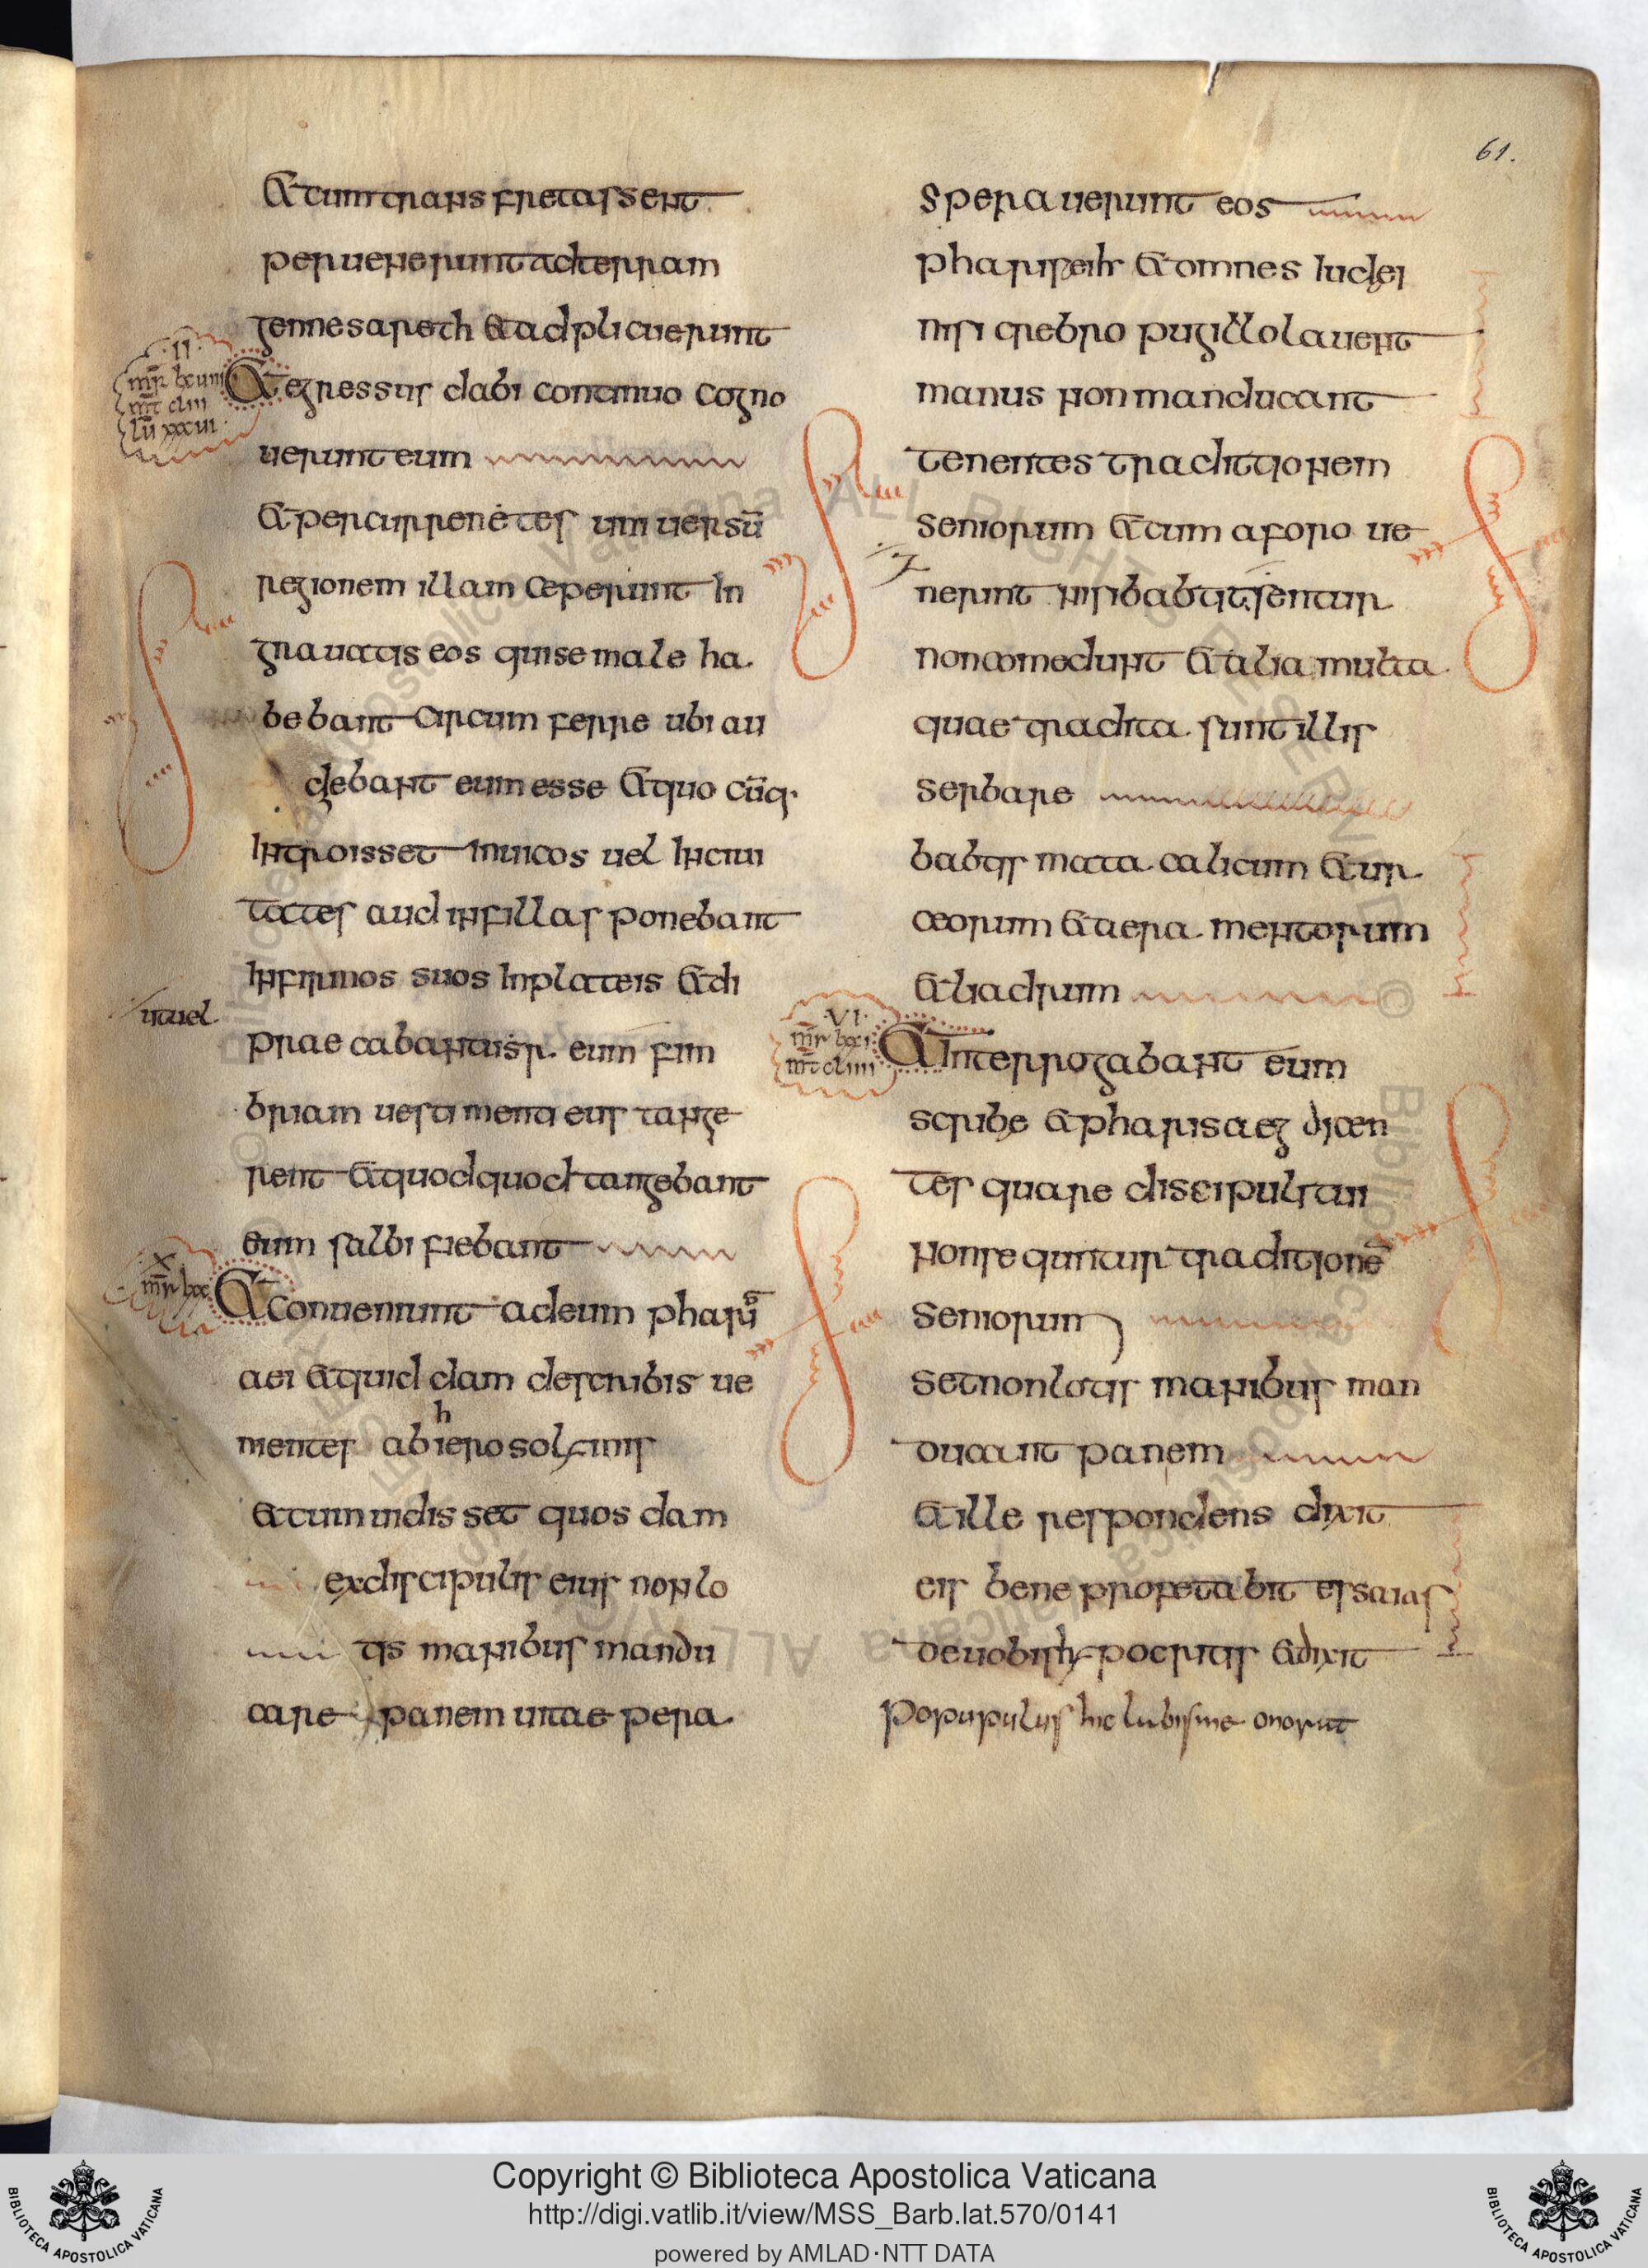 61.
Et cum transfretassent
peruenerunt ad terram
gennesareth et adplicuerunt
·II·
mr̄ lxuiii
mt̄ cliii
lū xxxui·
Et egressus dabi continuo cogno
uerunt eum
Et percurrenetes uniuersū
regionem illam ceperunt In
grauatis eos qui se male ha
bebant circum ferre ubi au
diebant eum esse Et quo cūq·
Introisset In uicos uel In ciui
tates aud in fillas ponebant
Infirmos suos In plateis Et di
ut uel
praecabantusr eum fim
briam uestimenti eius tange
rent Et quodquod tangebant
eum salbi fiebant
X
mr̄ lxx
Et conueniunt ad eum pharis
aei Et quid dam de scribis ue
nientes ab hierosolymis
Et cum uidisset quos dam
ex discipulis eius non lo
tis manibus mandu
care panem uitae pera
Sperauerunt eos
phariseih Et omnes Iudei
nisi crebro pugillo lauent
manus non manducant
tenentes traditionem
seniorum Et cum a foro ue
nerunt nisi babtitientur
non comedunt Et alia multa
quae tradita sunt illis
serbare
babtismata calicum Et ur
ceorum Et aeramentorum
Et liadrum
·VI·
mr̄ lxxi
mt̄ cliiii
Et Interrogabant eum
scribe Et pharisaei dicen
tes quare discipuli tui
non sequntur traditionē
seniorum
set non lotis manibus man
ducant panem
Et ille respondens dixit
eis bene profetabit esaias
de uobis hypocritis Et dixit
Popupulus hic lubis me onorat
Copyright © Biblioteca Apostolica Vaticana
http://digi.vatlib.it/view/MSS_Barb.lat.570/0141
powered by AMLAD·NTT DATA
BIBLIOTECA APOSTOLICA VATICANA
BIBLIOTECA APOSTOLICA VATICANA